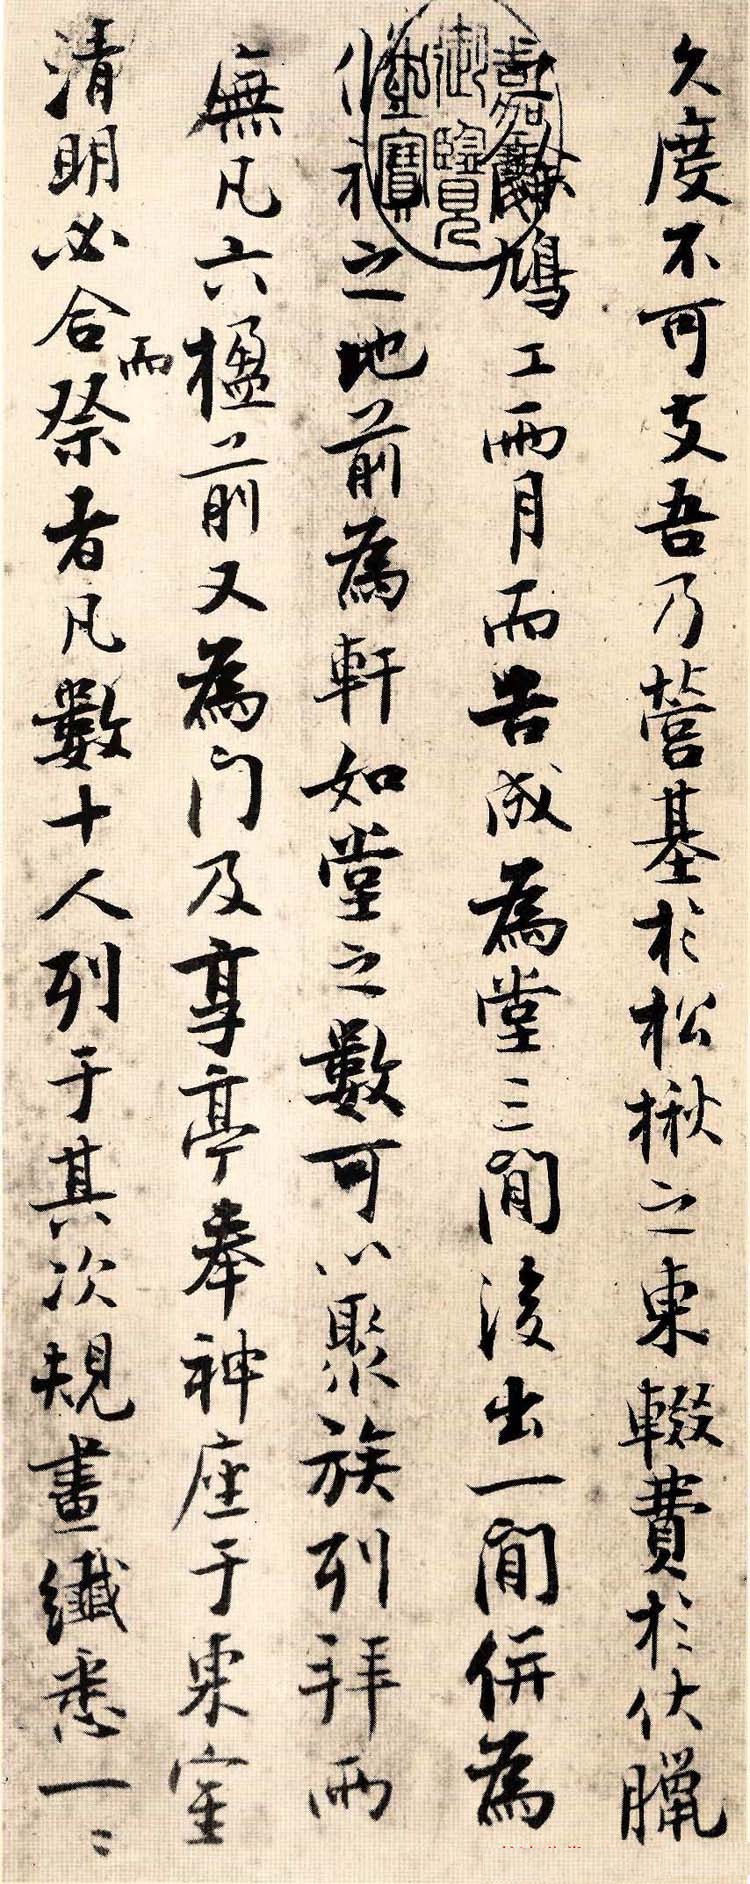 久度不可支吾乃營基於松楸之東輟費於伏臘
餘鳩工兩月而告成為堂三間後出一間併為
脩祀之地前為軒如堂之數可以聚族列拜兩
廡凡六楹前又為門及享亭奉神座于東室
而
清明必合祭者凡數十人列于其次規畫纖悉一〻
嘉慶
御覽
之寶